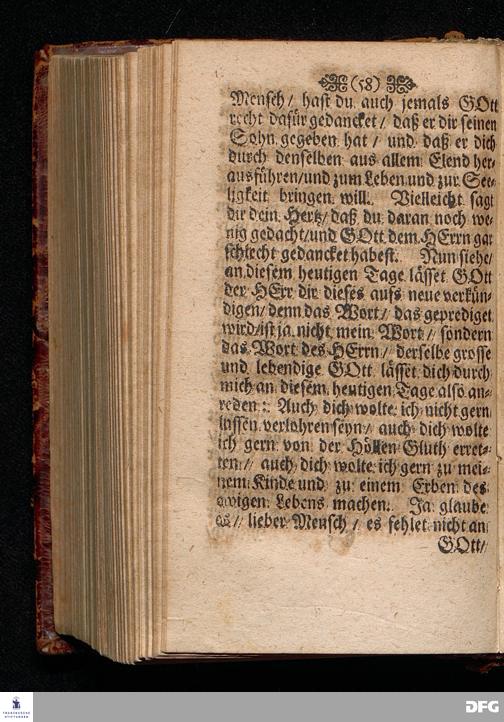 (58)
Mensch/ hast du auch jemals GOtt
recht dafür gedancket/ daß er dir seinen
Sohn gegeben hat/ und daß er dich
durch denselben aus allem Elend her-
ausführen/und zum Leben und zur See-
ligkeit bringen will. Vielleicht sagt
dir dein Hertz/ daß du daran noch we-
nig gedacht/und GOtt dem HErrn gar
schlecht gedancket habest. Nun siehe/
an diesem heutigen Tage lässet GOtt
der HErr dir dieses aufs neue verkün-
digen/ denn das Wort/ das geprediget
wird/ist ja nicht mein Wort/ sondern
das Wort des HErrn/ derselbe grosse
und lebendige GOtt lässet dich durch
mich an diesem heutigen Tage also an-
reden: Auch dich wolte ich nicht gern
lassen verlohren seyn/ auch dich wolte
ich gern von der Höllen Gluth erret-
ten/ auch dich wolte ich gern zu mei-
nem Kinde und zu einem Erben des
ewigen Lebens machen. Ja glaube
es/ lieber Mensch/ es fehlet nicht an
GOtt/
FRANCKESCHE
STIFTUNGEN
DFG